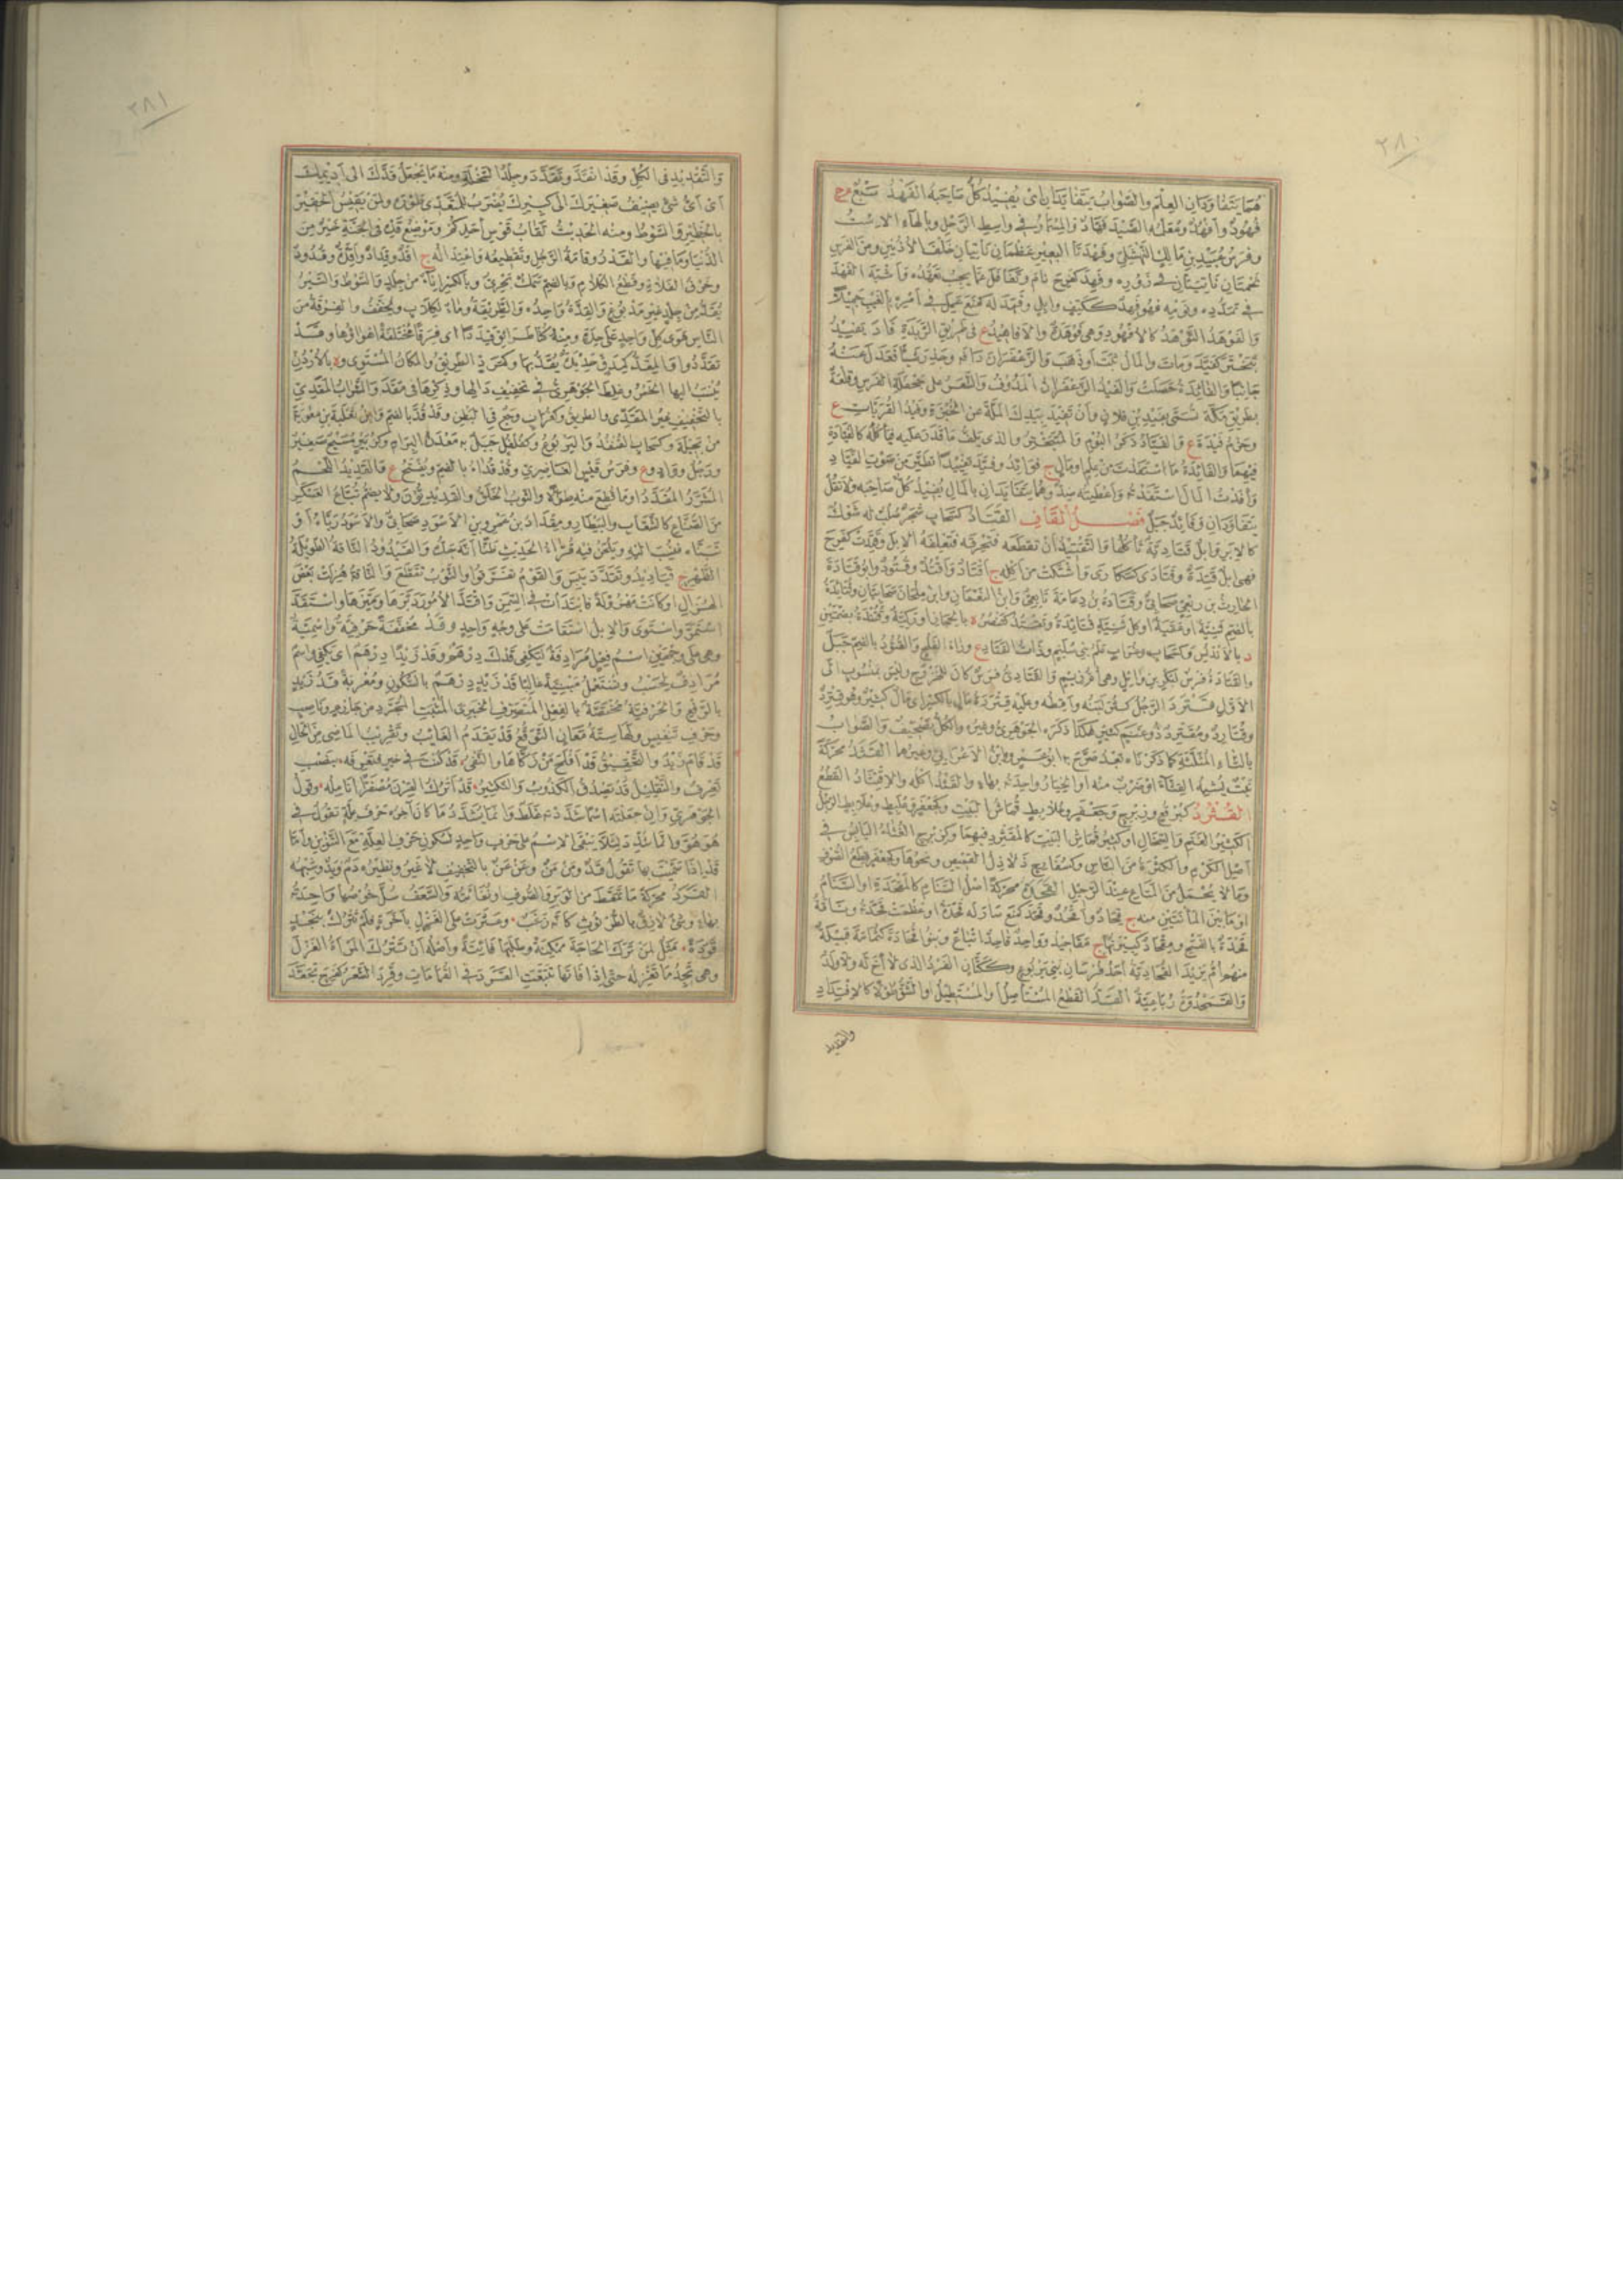 ٢٨٠
هما يتفاودان العلم والصواب يتفايدان اى يفيد كل صاحبه الفهد سبع م ج
فهود وأفهد ومعلمه الصيد فهاد والمسمار فى واسط الرحل وبالهاء الاست
وفرس عبيد بن مالك النهشلى وفهدتا البعير عظمان ناتيان خلف الاذنين ومن الفرس
لحمتان ناتيتان فى زوره وفهد كفرح نام وتغافل عما يجب تعهده وأشبه الفهد
فى تمدده ونومه فهو فهد ككتف وابل وفهد له كمنع عمل فى أمره بالغيب جميلا
والفوهد الثوهد كالافهود وهى فوهدة والافاهيد ع فى طريق الربذة فاد يفيد
تبختر كفيد ومات والمال ثبت أو ذهب والزعفران دافه وحذر شيأ فعدل عنه
جانبا والفائدة حصلت والفيد الزعفران المدوف والشعر على جحفلة الفرس وقلعة
بطريق مكة سميت بفيد بن فلان وأن تفيد بيدك الملة عن الخبزة وفيد القريات ع
وحزم فيدة ع والفياد ذكر البوم والمتبختر والذى يلف ما قدر عليه فيأكله كالفيادة
فيهما والفائدة ما استفدت من علم أو مال ج فوائد وفيد تفييدا تطير من صوت الفياد
وأفدت المال استفدته وأعطيته ضد وهما يتفايدان بالمال يفيد كل صاحبه ولا تقل
يتفاودان وفائد جبل فصل القاف القتاد كسحاب شجر صلب له شوك
كالابر وابل قتادية تأكلها والتقتيد أن تقطعه فتحرقه فتعلفه الابل وقتدت كفرح
فهى ابل قتدة وقتادى كسكارى واشتكت من أكله ج أقتاد وأقتد وقتود وابو قتادة
الحارث بن ربعى صحابى وقتادة بن دعامة تابعى وابن النعمان وابن ملحان صحابيان وقتائدة
بالضم ثنية أو عقبة او كل ثنية قتائدة وتقتد كتنصر ة بالحجاز او ركية وقتندة بضمتين
د بالاندلس وكسحاب وغراب علم بنى سليم وذات القتاد ع وراء الفلج والقتود بالضم جبل
والقتادة فرس لبكر بن وائل وهى أم زيم والقتادى فرس كان للخزرج وليس بمنسوب الى
الاول قترد الرجل كثر لبنه وأقطه وعليه قتردة مال بالكسر اى مال كثير وهو قترد
وقتارد ومقترد ذو غنم كثير هكذا ذكره الجوهرى وغيره والكل تصحيف والصواب
بالثاء المثلثة كما ذكرناه بعد صرح به أبو عمرو وابن الاعرابى وغيرهما القثد محركة
نبت يشبه القثاء او ضرب منه او الخيار واحدته بهاء والقثد اكله والاقتثاد القطع
القثرد كبرقع وزبرج وجعفر وعلابط قماش البيت وكجعفر وعلبط وعلابط الرجل
الكثير الغنم والسخال او كثير قماش البيت كالمقثرد فيهما وكزبرج الغثاء اليابس فى
أصل الكرم والكثرة من الناس وكسفاريج ذلاذل القميص ونحوها وكجعفر قطع الصوف
وما لا يحمل من المتاع عند الرحيل القحدة محركة اصل السنام كالمقحدة او السنام
او ما بين المأنتين منه ج قحاد وأقحد وقحد كمنع صار له قحدة او عظمت قحدته وناقة
قحدة بالفتح ومقحاد كبيرتها ج مقاحيد وواحد قاحد اتباع وبنو قحادة كثمامة قبيلة
منهم أم يزيد القحادية أحد فرسان بنى يربوع وككتان الفرد الذى لا أخ له ولا ولد
والقمحدوة رباعية القد القطع المستأصل أو المستطيل او الشق طولا كالاقتداد
والتقديد
٢٨١
والتقديد فى الكل وقد انقد وتقدد وجلد السخلة ومنه ما يجعل قدك الى أديمك
أى أى شئ يضيف صغيرك الى كبيرك يضرب للمتعدى طوره ولمن يقيس الحقير
بالخطير والسوط ومنه الحديث لقاب قوس أحدكم وموضع قده فى الجنة خير من
الدنيا وما فيها والقدر وقامة الرجل وتقطيعه واعتداله ج اقد وقداد وأقدة وقدود
وخرق الفلاة وقطع الكلام وبالضم سمك بحرى وبالكسر اناء من جلد والسوط والسير
يقد من جلد غير مدبوغ والقدة واحده والطريقة وماء لكلاب ويخفف والفرقة من
الناس هوى كل واحد على حدة ومنه كنا طرائق قددا اى فرقا مختلفة أهواؤها وقد
تقددوا والمقد كمدق حديدة يقد بها وكمرد الطريق والمكان المستوى وة بالاردن
ينسب اليها الخمر وغلط الجوهرى فى تخفيف دالها وذكرها فى مقد والشراب المقدى
بالتخفيف غير المقدى والطريق وكغراب وجع فى البطن وقد قد بالضم وابن ثعلبة بن معوية
من بجيلة وكسحاب القنفذ واليربوع وكفلفل جبل به معدن البرام وكزبير مسيح صغير
ورجل وواد وع وفرس قيس الغاضرى وقد قداء بالضم ويفتح ع والقديد اللحم
المشرر المقدد او ما قطع منه طولا والثوب الخلق والقديديون ولا يضم تباع العسكر
من الصناع كالشعاب والبيطار ومقداد بن عمرو بن الاسود صحابى والاسود رباه أو
تبناه فنسب اليه ويلحن فيه قراء الحديث ظنا أنه جده والقيدود الناقة الطويلة
الظهر ج قياديد وتقدد يبس والقوم تفرقوا والثوب تقطع والناقة هزلت بعض
الهزال او كانت مهزولة فابتدأت فى السمن واقتد الامور دبرها وميزها واستقد
استمر واستوى والابل استقامت على وجه واحد وقد مخففة حرفية واسمية
وهى على وجهين اسم فعل مرادفة ليكفى قدك درهم وقد زيدا درهم اى يكفى واسم
مرادف لحسب وتستعمل مبنية غالبا قد زيد درهم بالسكون ومعربة قد زيد
بالرفع والحرفية مختصة بالفعل المتصرف الخبرى المثبت المجرد من جازم وناصب
وحرف تنفيس ولها ستة معان التوقع قد يقدم الغائب وتقريب الماضى من الحال
قد قام زيد والتحقيق قد أفلح من زكاها والنفى قد كنت فى خير فتعرفه بنصب
تعرف والتقليل قد يصدق الكذوب والتكثير قد أترك القرن مصفرا أنامله وقول
الجوهرى وان جعلته اسما شددته غلط وانما يشدد ما كان آخره حرف علة تقول فى
هو هو وانما شدد لئلا يبقى الاسم على حرف واحد لسكون حرف العلة مع التنوين وأما
قد اذا سميت بها تقول قد ومن من وعن عن بالتخفيف لا غير ونظيره دم ويد وشبهه
القرد محركة ما تمعط من الوبر والصوف او نفايته والسعف سل خوصها واحدته
بهاء وشئ لازق بالطرثوث كأنه زغب وعثرت على الغزل بأخرة فلم تترك بنجد
قردة مثل لمن ترك الحاجة ممكنة وطلبها فائتة وأصله أن تترك المرأة الغزل
وهى تجد ما تغزله حتى اذا فاتها تتبعت القرد فى القمامات وقرد الشعر كفرح تجعد